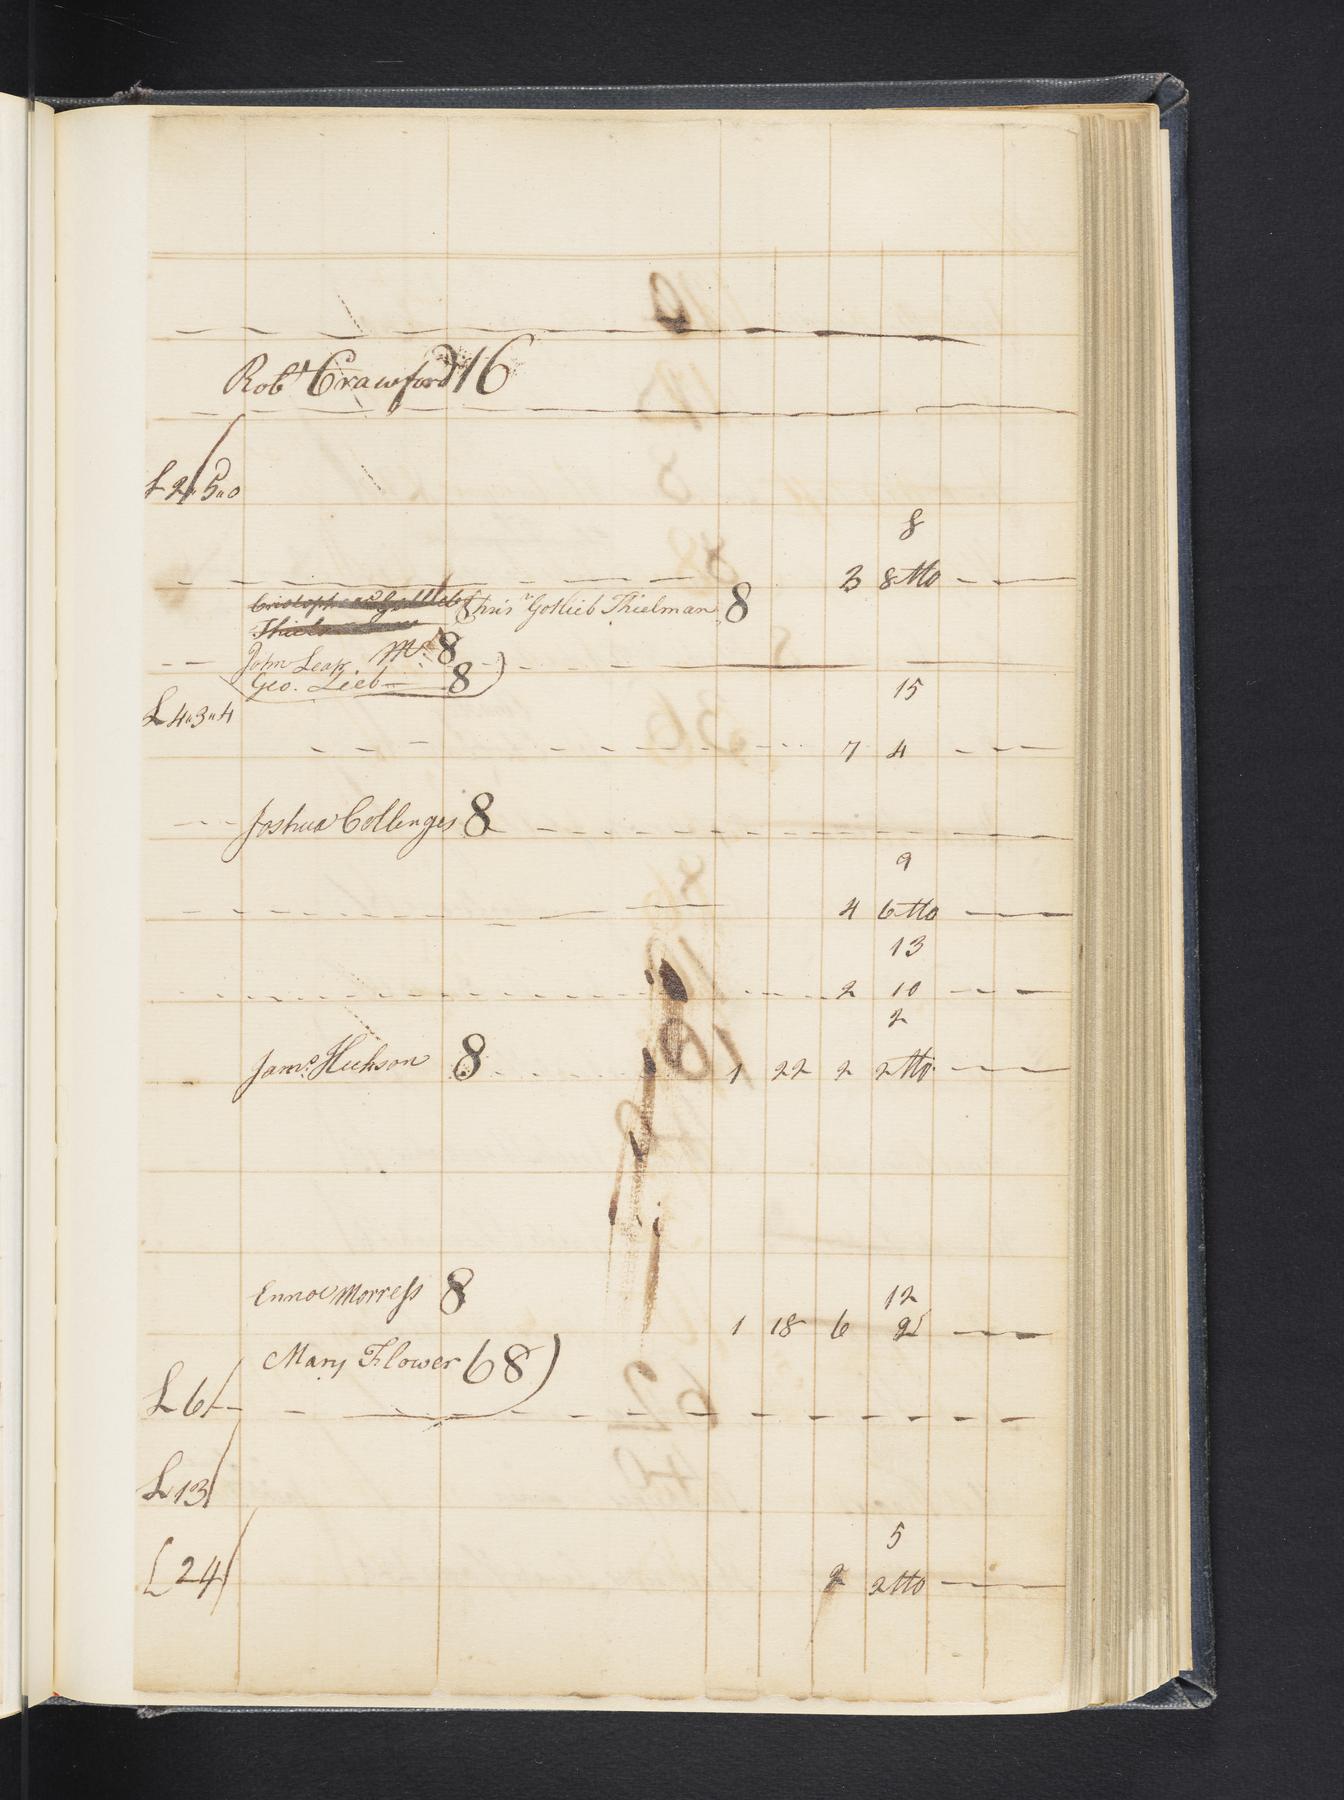 Robt Crawford 16
£ 2 " 5 " 0
8
3 8 tto
Cristopher Gottlieb Chrisr Gotlieb Thielman 8
Thielman
John Leak Mr. 8
Geo. Lieb 8
15
£ 4 " 3 " 4
7 4
Joshua Collenges 8
9
4 6 tto
13
2 10
2
Jams. Hickson 8 1 22 2 2 tto
Ennoc Morress 8 12
1 18 6
Mary Flower 68
£ 6
£ 13
5
£ 24 2 2 tto